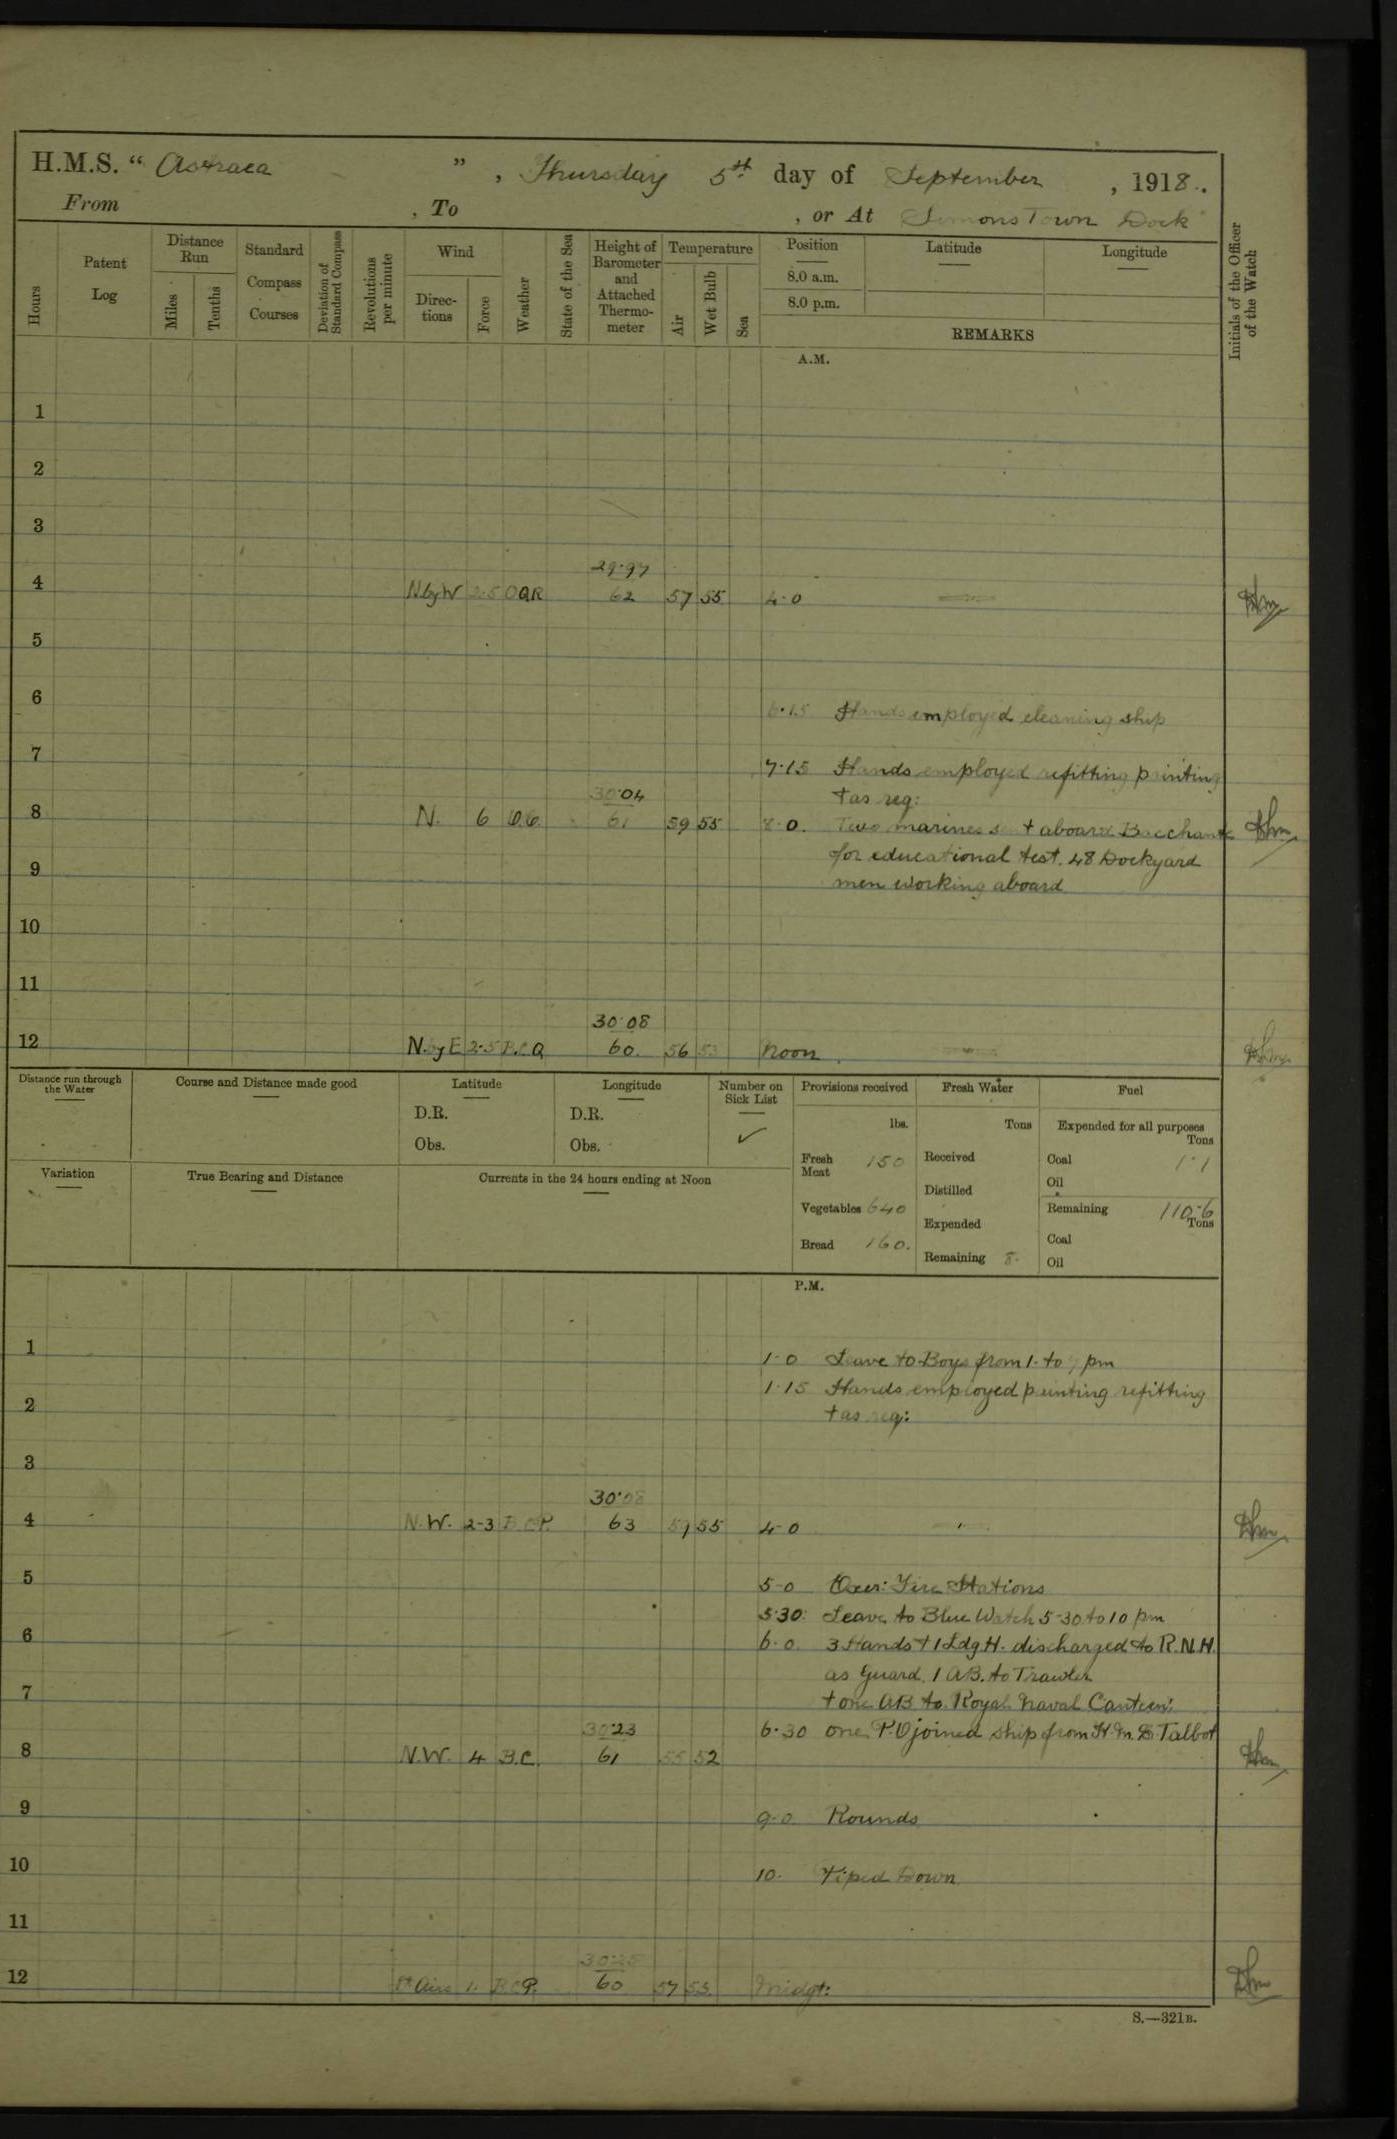 H.M.S. "Astraea", Thursday 5th day of September, 1918.
From , To , or At Simons Town Dock
Hours
Patent Log
Distance Run
Miles
Tenths
Standard Compass Courses
Deviation of Standard Compass
Revolutions per minute
Wind
Directions
Force
Weather
State of the Sea
Height of Barometer and Attached Thermometer
Temperature
Air
Wet Bulb
Sea
Position
8.0 a.m.
8.0 p.m.
Latitude
Longitude
REMARKS
Initials of the Officer of the Watch
A.M.
1
2
3
29.97
4 NbyW 2-5 OQR 62 57 55 4.0
5
6
6.15 Hands employed cleaning ship
7
7.15 Hands employed refitting painting
30.04 + as req:
8 N. 6 61 59 55 8.0. Two marines sent aboard Bacchante
for educational test. 48 Dockyard
9
men working aboard
10
11
30.08
12 N.byE 2-5 B.C.Q 60. 56 53 Noon
Distance run through the Water
Course and Distance made good
Latitude
D.R.
Obs.
Longitude
D.R.
Obs.
Number on Sick List
✓
Provisions received
lbs.
Fresh Meat 150
Vegetables 640
Bread 160.
Fresh Water
Tons
Received
Distilled
Expended
Remaining 8.
Fuel
Expended for all purposes
Tons
Coal 1.1
Oil
Remaining 110.6
Tons
Coal
Oil
Variation
True Bearing and Distance
Currents in the 24 hours ending at Noon
P.M.
1
1.0 Leave to Boys from 1. to 7 pm
1.15 Hands employed painting refitting
2
+ as req:
3
30.08
4 N.W. 2-3 B.C.P. 63 55 4-0
5
5-0 Exer: Fire Stations
5.30: Leave to Blue Watch 5-30 to 10 pm
6
6.0. 3 Hands + 1 Ldg H. discharged to R.N.H.
as Guard. 1 AB. to Trawler
7
+ one AB to Royal Naval Canteen.
30.23 6.30 one P.O joined ship from H.M.S. Talbot
8 N.W. 4 B.C. 61 55 52
9
9.0. Rounds
10
10. Piped Down
11
12 Lt Airs 1. B.C.P. 60 57 53. Midgt:
S.—321B.